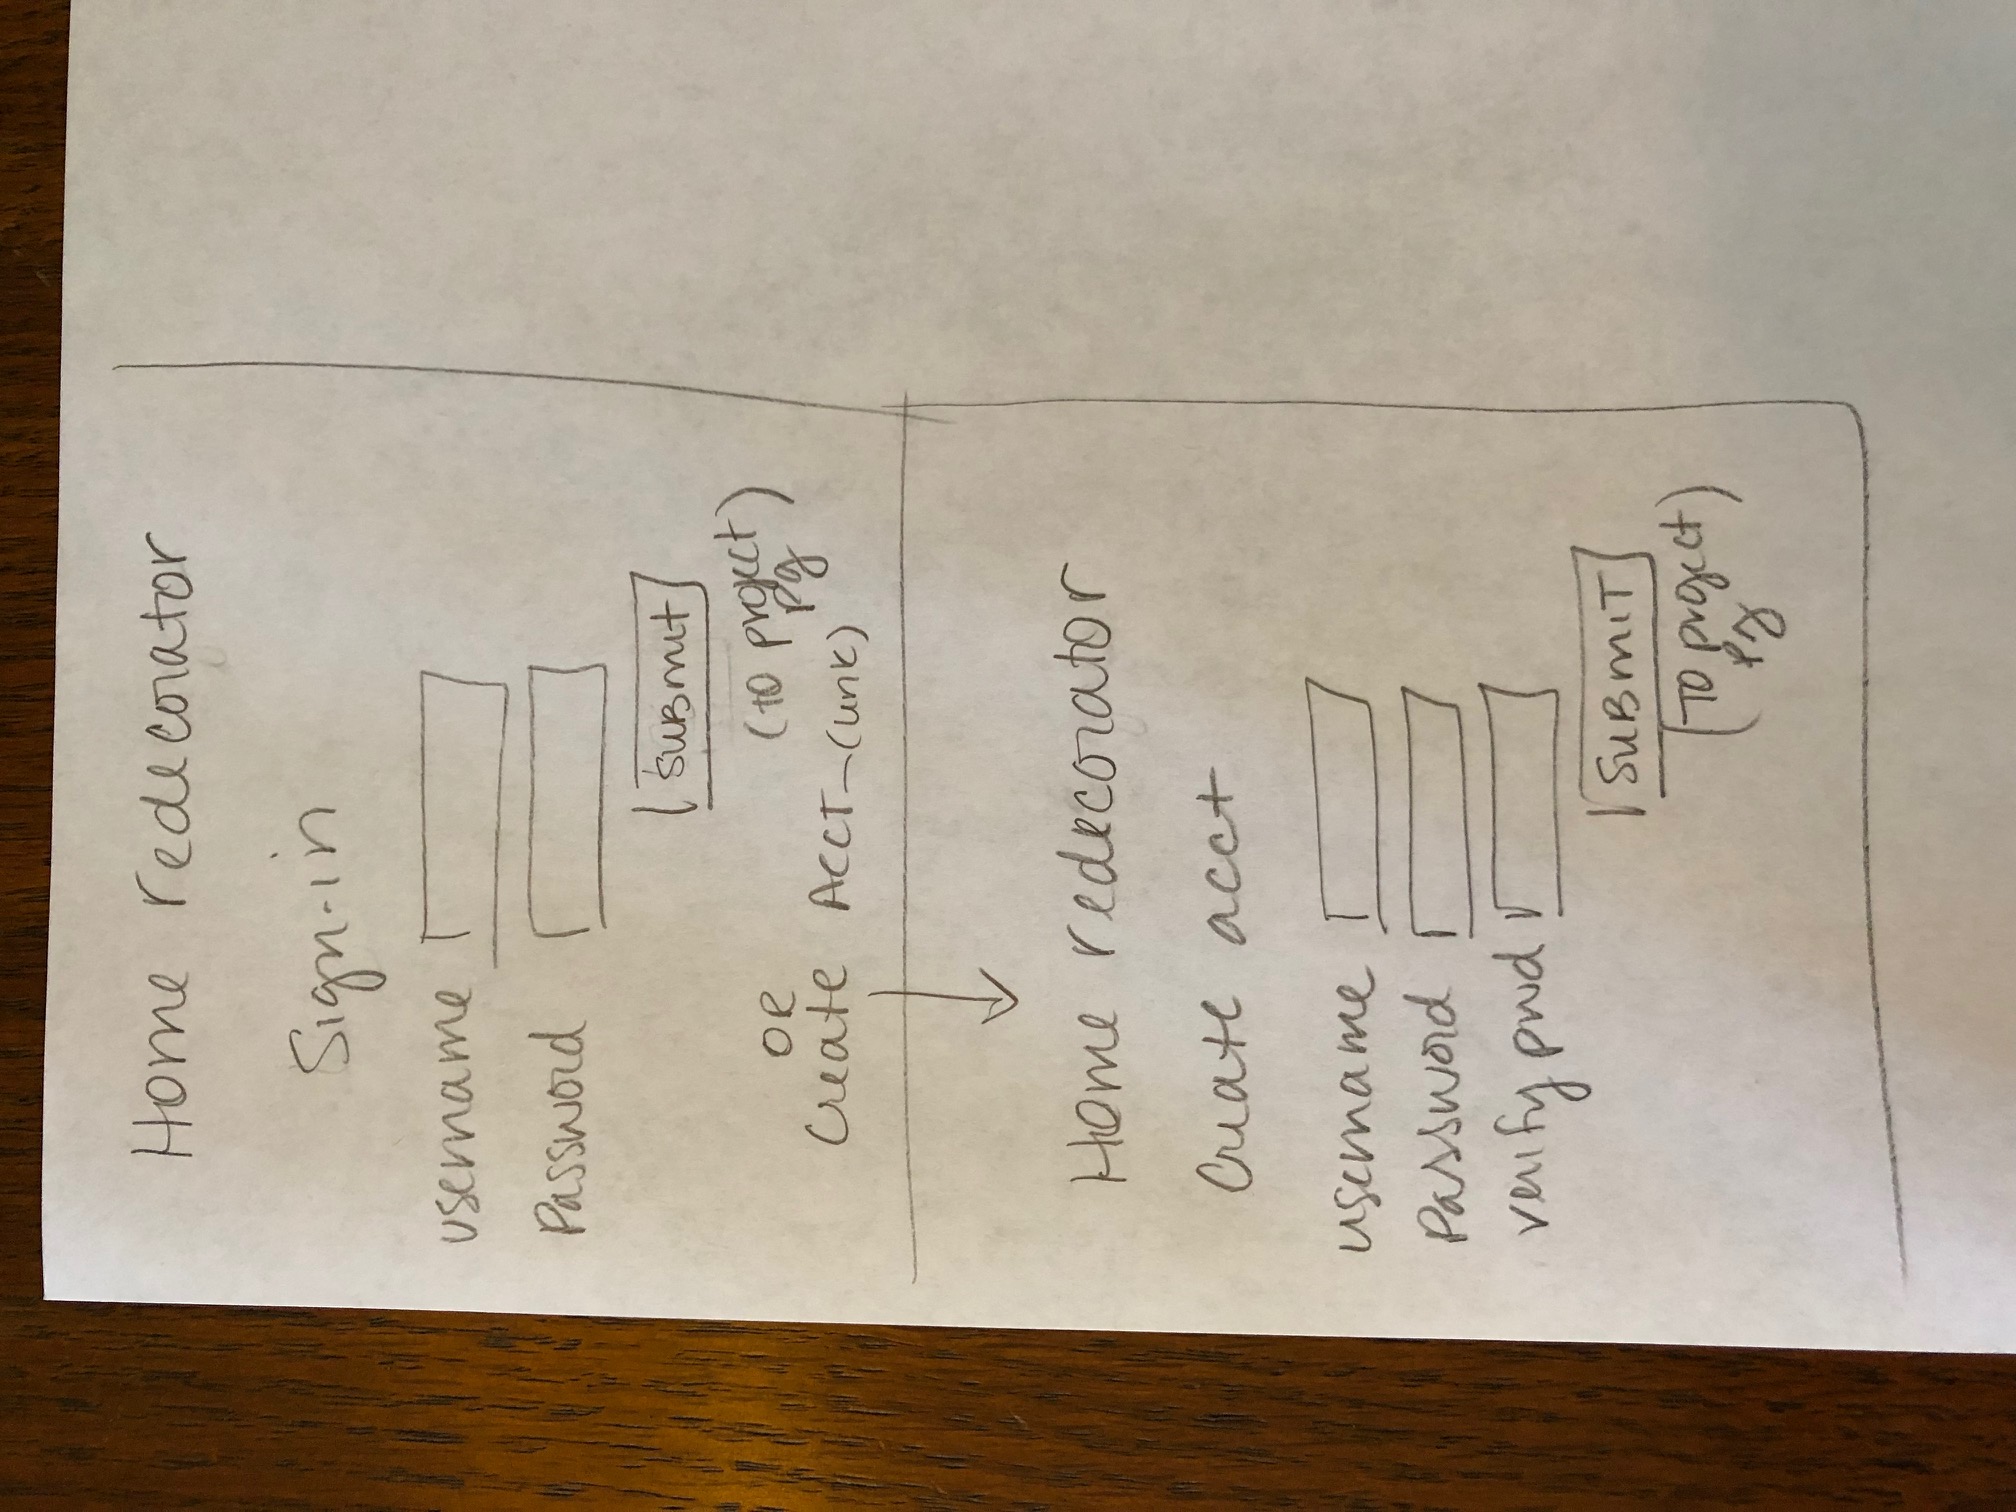 Home redecorator
Sign-in
username
Password
SUBMIT
(to project
pg)
OR
Create ACCT - (link)
Home redecorator
Create acct
username
Password
verify pwd
SUBMIT
(TO project
pg)